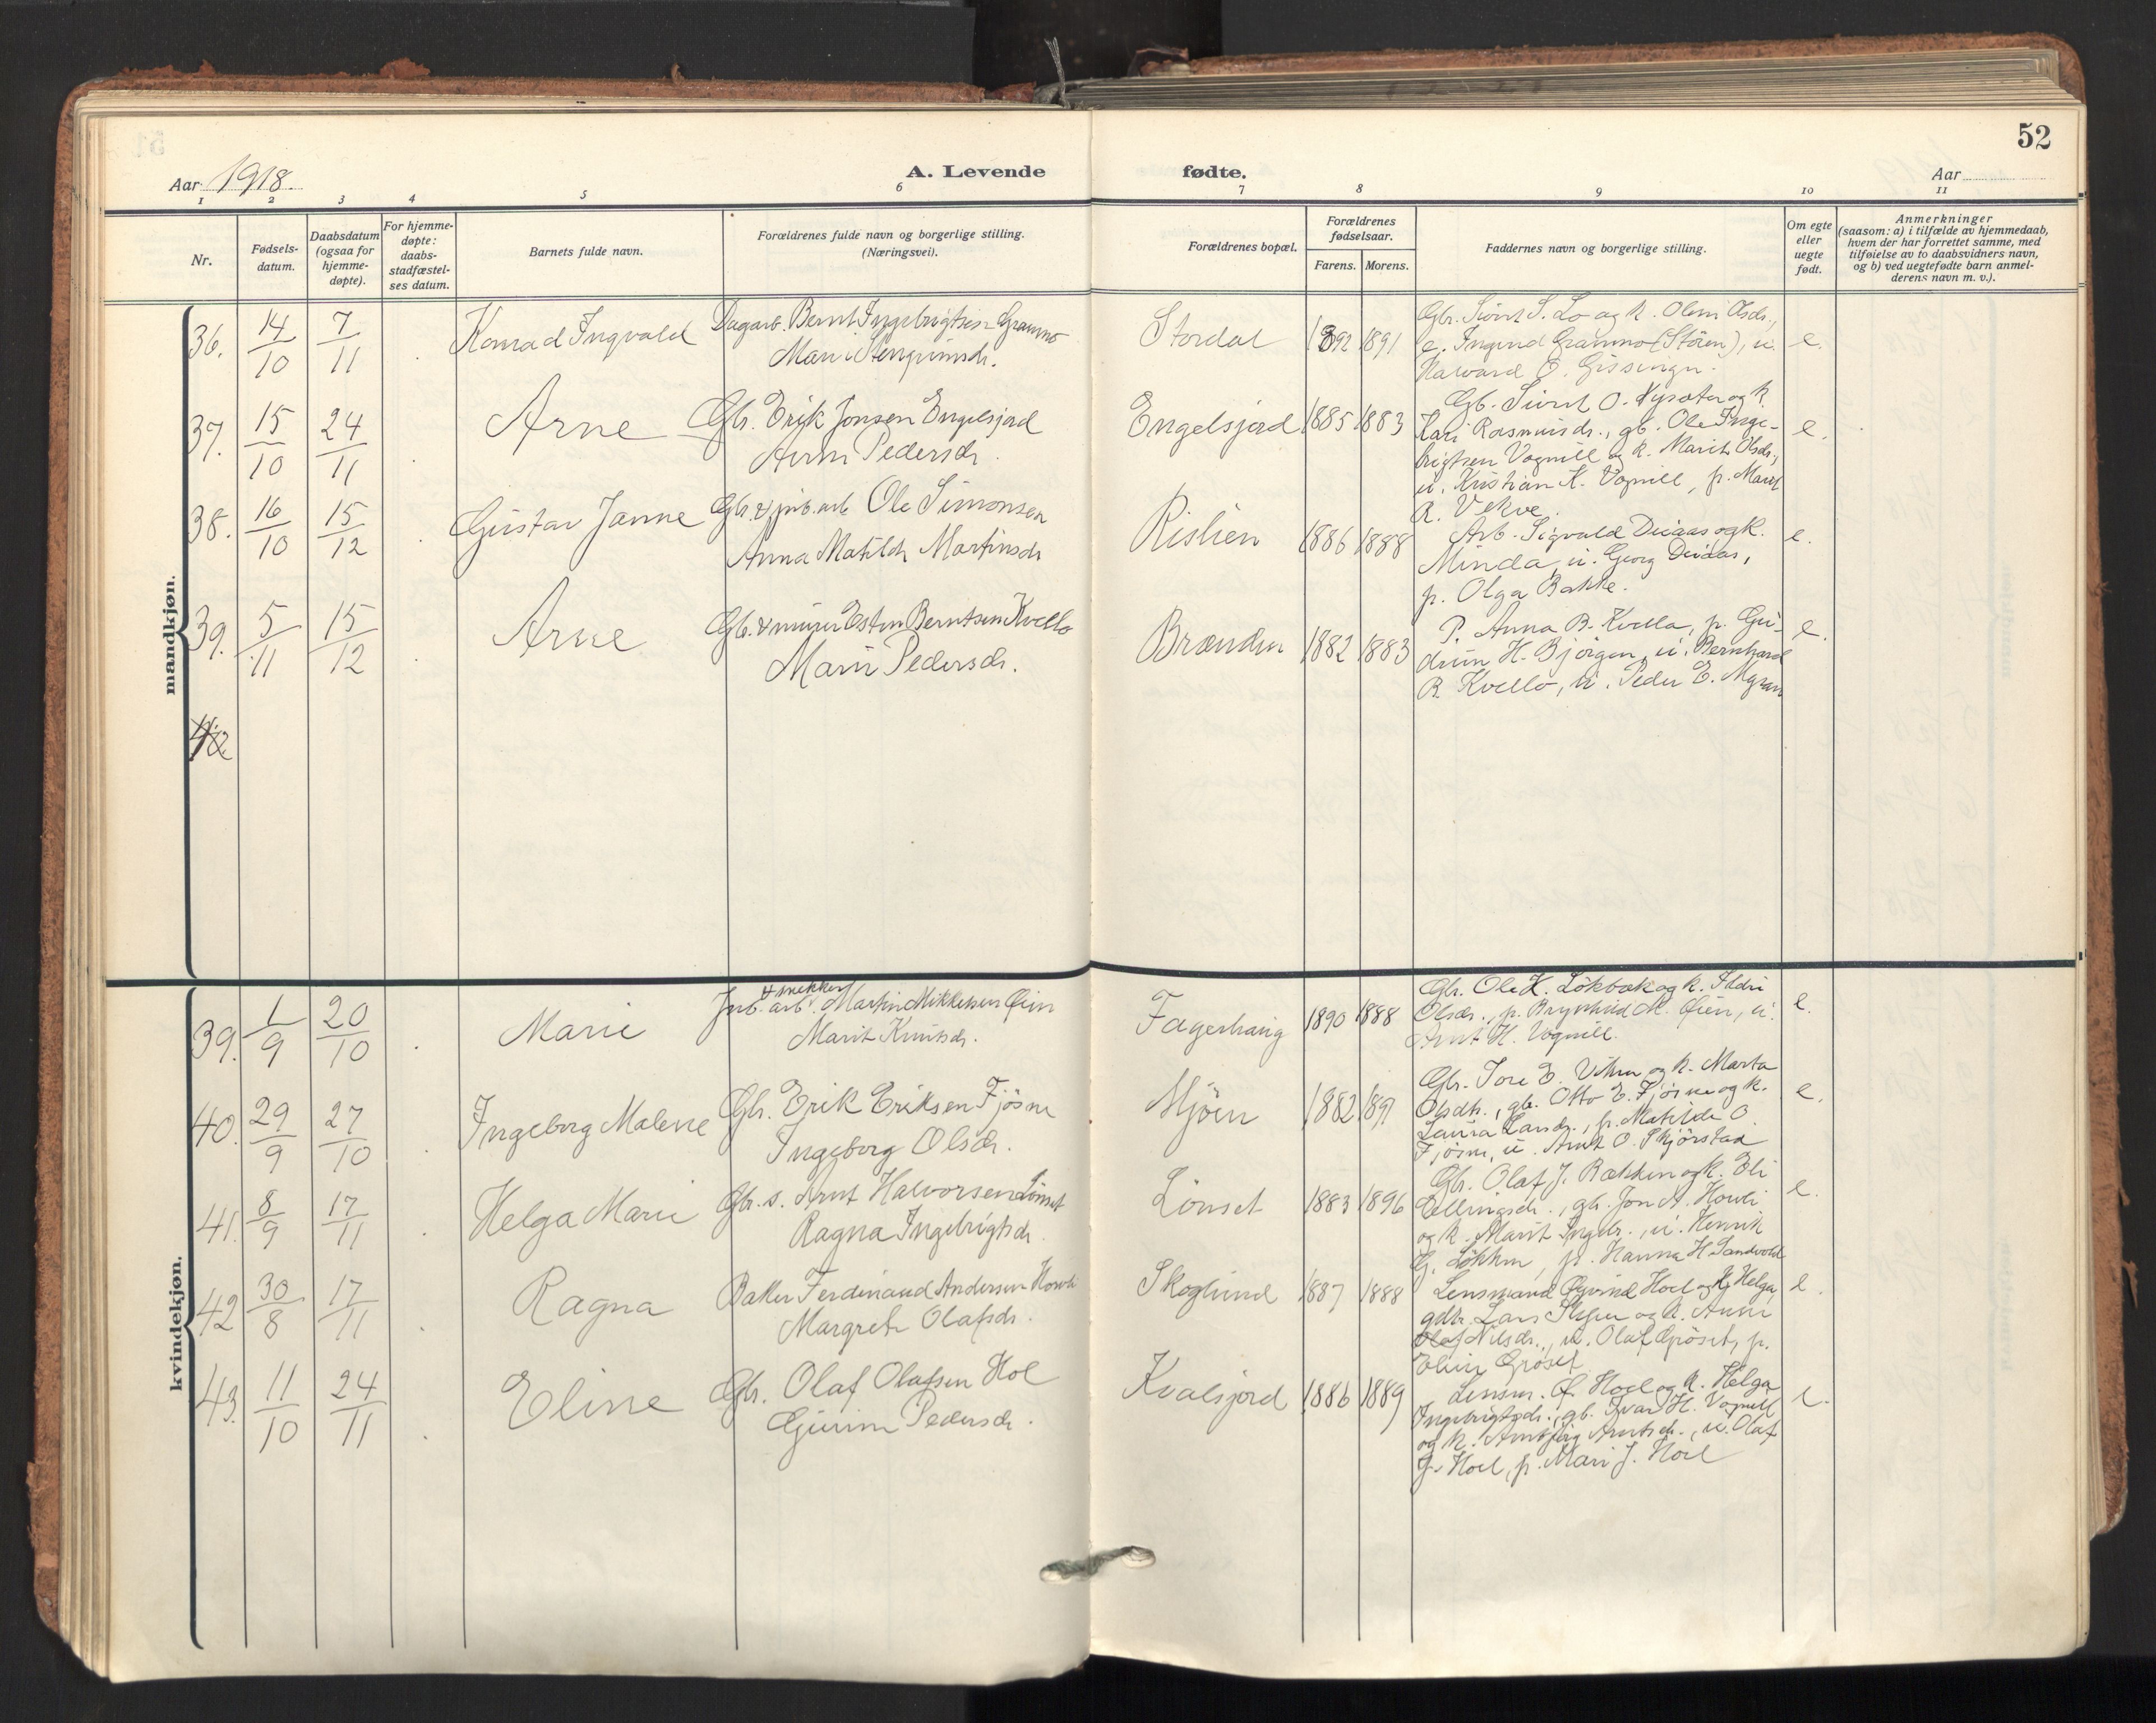 52
Aar 1918.
A. Levende fødte.
Aar
1 2 3 4 5 6 7 8 9 10 11
Nr.
Fødsels-
datum.
Daabsdatum
(ogsaa for
hjemme-
døpte).
For hjemme-
døpte:
daabs-
stadfæstel-
ses datum.
Barnets fulde navn.
Forældrenes fulde navn og borgerlige stilling.
(Næringsvei).
Forældrenes bopæl.
Forældrenes
fødselsaar.
Farens. Morens.
Faddernes navn og borgerlige stilling.
Om egte
eller
uegte
født.
Anmerkninger
(saasom: a) i tilfælde av hjemmedaab,
hvem der har forrettet samme, med
tilføielse av to daabsvidners navn,
og b) ved uegtefødte barn anmel-
derens navn m. v.).
mandkjøn.
36. 14/10 7/11 Konrad Ingvald
Dagarb. Bernt Ingebrigtsen Granmo
Mari
Stordal 1892 1891
Gbr. Sivert S. Lo og k. Olsdr.,
Granmo (Støren), u.
Halvard O. Gissingr.
e.
37. 15/10 24/11 Arne
Gbr. Erik Jonsen Engelsjord
Pedersdr.
Engelsjord 1885 1883
Gb. Sivert O. Nysæter og k.
Kari Rasmusdr., gb. Ole Inge-
brigtsen Vognill og k. Marit Olsdr.,
u. Kristian K. Vognill, p. Marit
R. Vekve.
e.
38. 16/10 15/12 Gustav Janne
Gbr. & jrb.arb. Ole Simonsen
Anna Matilde Martinsdr.
Rislien 1886 1888
Arb. Sigvald Duaas og k.
Minda, u. Georg Duaas,
p. Olga Bakke.
e.
39. 5/11 15/12 Arne
Gb. & murer Esten Berntsen Kvello
Marie Pedersdr.
Brænden 1882 1883
P. Anna B. Kvello, p. Gu-
drun H. Bjørgen, u. Bernhard
B. Kvello, u. Peder E.
e.
kvindekjøn.
39. 1/9 20/10 Marie
& snekker
Jrb. arb. Martin Mikkelsen Øien
Marit Knutsdr.
Fagerhaug 1890 1888
Gbr. Ole K. Løkbæk og k. Ildri
Olsdr., p. Brynhild M. Øien, u.
Arnt H. Vognill.
e.
40. 29/9 27/10 Ingeborg Malene
Gbr. Erik Eriksen Fjøsne
Ingeborg Olsdr.
Mjøen 1882 1891
Gbr. Tore E. og k. Marta
Olsdtr., gb. Otto E. Fjøsne og k.
Laura Larsdr., p. Matilde O.
Fjøsne, u. Arnt O. Skjørstad
e.
41. 8/9 17/11 Helga Marie
Gbr. s. Arnt Halvorsen Lønset
Ragna Ingebrigtsdr.
Lønset 1883 1896
Gbr. Olaf J. Bækken og k. Eli
Ellingsdr., gb. Jon A. Hovli
og k. Marit Ingebr., u. Henrik
G. Løkken, p. Hanna H. Sandvold
e.
42 30/8 17/11 Ragna
Baker Ferdinand Andersen Hovli
Margrete Olafsdr.
Skoglund 1887 1888
Lensmand Øyvind Hoel og k. Helga,
gdbr. Lars og k. Anne
Nilsdr., u. Olaf Grøset, p.
Eline Grøset
e.
43. 11/10 24/11 Eline
Gbr. Olaf Olafsen Hol
Gurine Pedersdr.
Kvalsjord 1886 1889
Lensm. Ø. Hoel og k. Helga
Ingebrigtsdr., gb. Ivar H. Vognill
og k. Arntsdr., u. Olaf
J. Hoel, p. Mari J. Hoel
e.